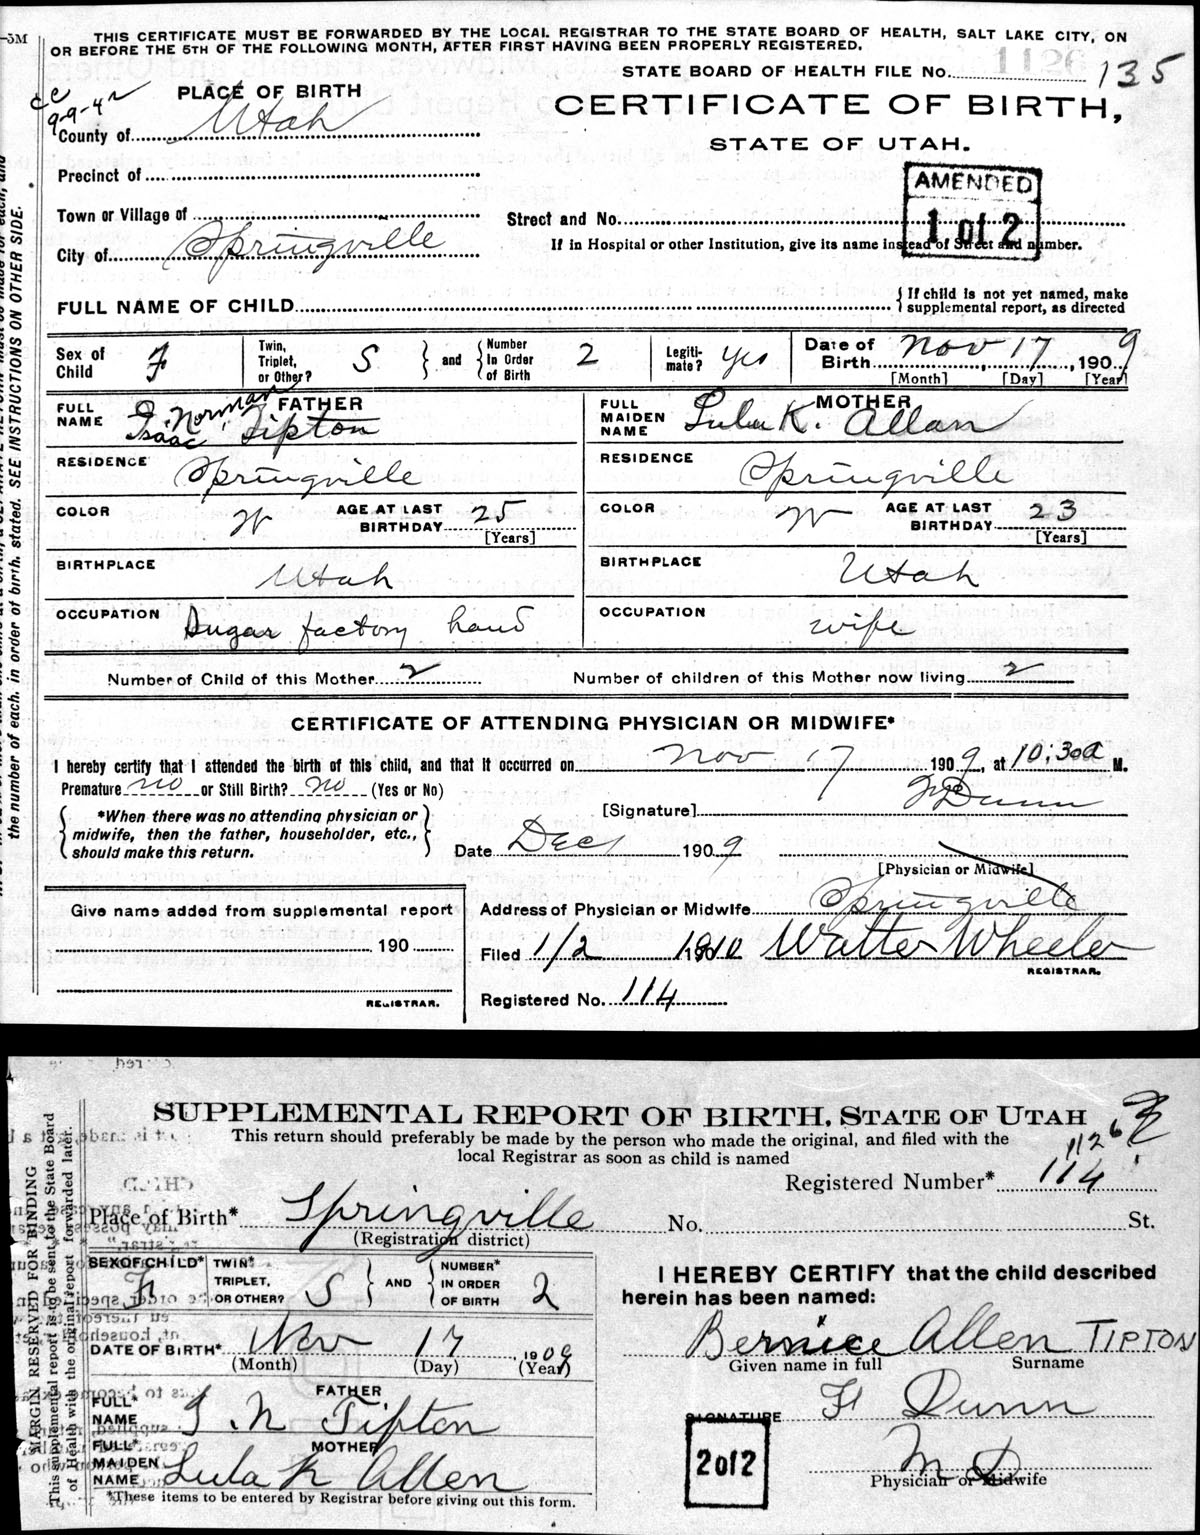 -5M
THIS CERTIFICATE MUST BE FORWARDED BY THE LOCAL REGISTRAR TO THE STATE BOARD OF HEALTH, SALT LAKE CITY, ON
OR BEFORE THE 5TH OF THE FOLLOWING MONTH, AFTER FIRST HAVING BEEN PROPERLY REGISTERED.
STATE BOARD OF HEALTH FILE No. 1126 135
cc
9-9-42
PLACE OF BIRTH
CERTIFICATE OF BIRTH,
STATE OF UTAH.
County of Utah
Precinct of
AMENDED
1 of 2
Town or Village of
Street and No.
City of Springville
If in Hospital or other Institution, give its name instead of Street and number.
FULL NAME OF CHILD
{If child is not yet named, make
supplemental report, as directed
Sex of Child F
Twin, Triplet, or Other? S } and { Number In Order of Birth 2
Legiti-mate? Yes
Date of Birth Nov 17, 1909
[Month] [Day] [Year]
FATHER
FULL NAME I. Norman Tipton
Isaac
MOTHER
FULL MAIDEN NAME Lula K. Allan
RESIDENCE Springville
RESIDENCE Springville
COLOR W AGE AT LAST BIRTHDAY 25 [Years]
COLOR W AGE AT LAST BIRTHDAY 23 [Years]
BIRTHPLACE Utah
BIRTHPLACE Utah
OCCUPATION Sugar factory hand
OCCUPATION wife
Number of Child of this Mother 2 Number of children of this Mother now living 2
CERTIFICATE OF ATTENDING PHYSICIAN OR MIDWIFE*
I hereby certify that I attended the birth of this child, and that it occurred on Nov 17 1909, at 10:30a M.
Premature no or Still Birth? no (Yes or No)
[Signature] F Dunn
{*When there was no attending physician or
midwife, then the father, householder, etc.,
should make this return.}
Date Dec 1909
[Physician or Midwife]
Give name added from supplemental report
190
REGISTRAR.
Address of Physician or Midwife Springville
Filed 1/2 1910 Walter Wheeler
REGISTRAR.
Registered No. 114
the number of each, in order of birth, stated. SEE INSTRUCTIONS ON OTHER SIDE.
SUPPLEMENTAL REPORT OF BIRTH, STATE OF UTAH
This return should preferably be made by the person who made the original, and filed with the
local Registrar as soon as child is named
1126
Registered Number* 114
Place of Birth* Springville No. St.
(Registration district)
SEX OF CHILD* F
TWIN* TRIPLET, OR OTHER? S } AND { NUMBER* IN ORDER OF BIRTH 2
DATE OF BIRTH* Nov 17, 1909
(Month) (Day) (Year)
FATHER
FULL* NAME I. N Tipton
MOTHER
FULL* MAIDEN NAME Lula K Allen
*These items to be entered by Registrar before giving out this form.
I HEREBY CERTIFY that the child described
herein has been named:
Bernice Allen TIPTON
Given name in full Surname
SIGNATURE F Dunn
2 of 2
M D
Physician or Midwife
MARGIN RESERVED FOR BINDING
This supplemental report is to be sent to the State Board
of Health with the original report forwarded later.